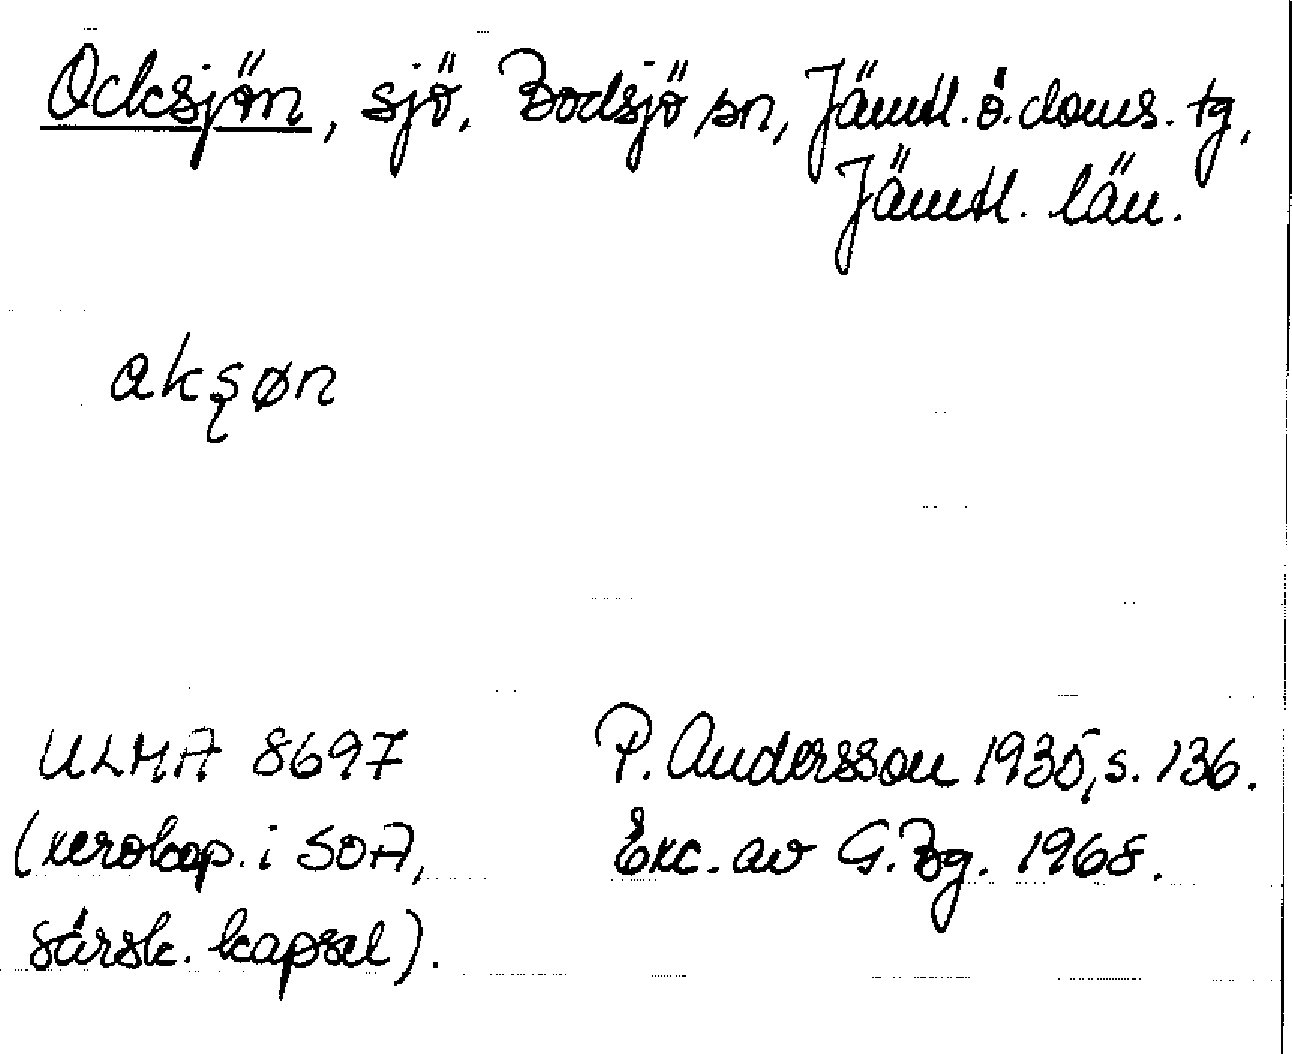 Ocksjön, sjö, Bodsjö sn, Jämtl. ö. doms. tg,
Jämtl. län.
akşøn
ULMA 8697 P. Andersson 1935, s. 136.
(xerokop. i SOA, Exc. av G. Bg. 1968.
särsk. kapsel).